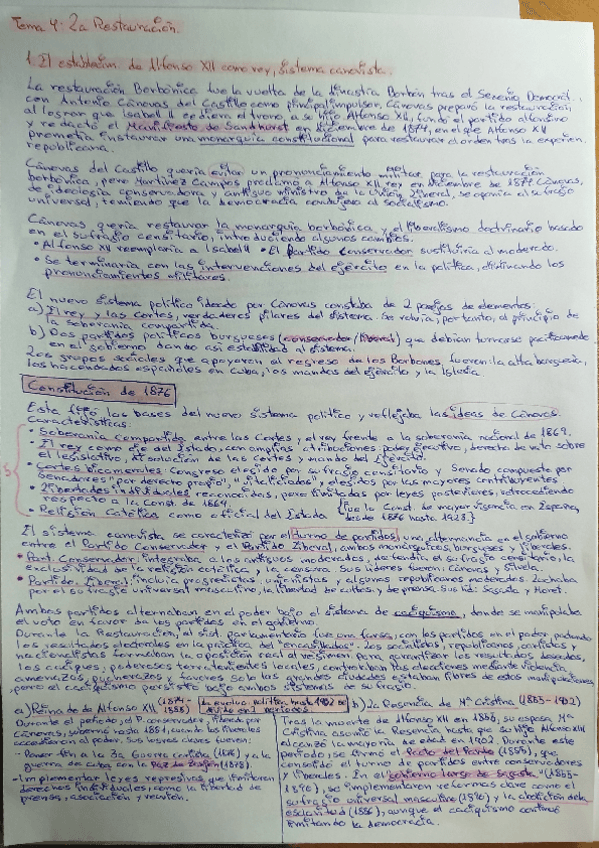 Tema 4: La Restauración.
1. El establecim. de Alfonso XII como rey, sistema canovista.
La restauración Borbónica fue la vuelta de la dinastía Borbón tras el Sexenio Democrát.,
con Antonio Cánovas del Castillo como principal impulsor. Cánovas preparó la restauración
al lograr que Isabel II cediera el trono a su hijo Alfonso XII, fundó el partido alfonsino
y redactó el Manifiesto de Sandhurst en diciembre de 1874, en el que Alfonso XII
prometía instaurar una monarquía constitucional para restaurar el orden tras la experien.
republicana.
Cánovas del Castillo quería evitar un pronunciamiento militar para la restauración
borbónica, pero Martínez Campos proclamó a Alfonso XII rey en diciembre de 1874. Cánovas,
de ideología conservadora y antiguo ministro de la Unión Liberal, se oponía al sufragio
universal, temiendo que la democracia condujera al socialismo.
Cánovas quería restaurar la monarquía borbónica y el liberalismo doctrinario basado
en el sufragio censitario, introduciendo algunos cambios.
• Alfonso XII reemplazaría a Isabel II • El Partido Conservador sustituiría al moderado.
• Se terminaría con las intervenciones del ejército en la política, eliminando los
pronunciamientos militares.
El nuevo sistema político ideado por Cánovas constaba de 2 parejas de elementos:
a) El rey y las Cortes, verdaderos pilares del sistema. Se volvía, por tanto, al principio de
la soberanía compartida.
b) Dos partidos políticos burgueses (conservador/liberal) que debían turnarse pacíficamente
en el gobierno, dando así estabilidad al sistema.
Los grupos sociales que apoyaron el regreso de los Borbones fueron: la alta burguesía,
los hacendados españoles en Cuba, los mandos del ejército y la Iglesia
Constitución de 1876
Esta fijó las bases del nuevo sistema político y reflejaba las ideas de Cánovas.
Características:
• Soberanía compartida entre las Cortes y el rey frente a la soberanía nacional de 1869.
• El rey como eje del Estado, con amplias atribuciones: poder ejecutivo, derecho de veto sobre
el legislativo, disolución de las Cortes y mando del Ejército.
• Cortes bicamerales: Congreso elegido por sufragio censitario y Senado compuesto por
senadores "por derecho propio", "vitalicios", elegidos por los mayores contribuyentes
• Libertades individuales reconocidas, pero limitadas por leyes posteriores, retrocediendo
respecto a la Const. de 1869
• Religión Católica como oficial del Estado. [Fue la Const. de mayor vigencia en España,
desde 1876 hasta 1923]
El sistema canovista se caracterizó por el turno de partidos, una alternancia en el gobierno
entre el Partido Conservador y el Partido Liberal, ambos monárquicos, burgueses y liberales.
• Part. Conservador: integraba a los antiguos moderados, defendía el sufragio censitario, la
exclusividad de la religión católica y la censura. Sus líderes fueron: Cánovas y Silvela.
• Partido Liberal: incluía progresistas, unionistas y algunos republicanos moderados. Luchaba
por el sufragio universal masculino, la libertad de cultos y de prensa. Sus líd: Sagasta y Moret.
Ambos partidos alternaban en el poder bajo el sistema de caciquismo, donde se manipulaba
el voto en favor de los partidos en el gobierno.
Durante la Restauración, el sist. parlamentario fue una farsa, con los partidos en el poder pactando
los resultados electorales en la práctica del "encasillado". Los socialistas, republicanos, carlistas y
nacionalistas formaban la oposición real al régimen. Para garantizar los resultados deseados,
los caciques, poderosos terratenientes locales, controlaban las elecciones mediante violencia,
amenazas, pucherazos y favores. Solo las grandes ciudades estaban libres de estas manipulaciones,
pero el caciquismo persistió bajo ambos sistemas de sufragio.
La evoluc. política hasta 1902 se
a) Reinado de Alfonso XII (1874-1885)
Durante el período, el P. conservador, liderado por
Cánovas, gobernó hasta 1881, cuando los liberales
accedieron al poder. Sus logros claves fueron:
- Poner fin a la 3ª Guerra carlista (1876) y a la
guerra de Cuba con la Paz de Zanjón (1878).
- Implementar leyes represivas que limitaron
derechos individuales, como la libertad de
prensa, asociación y reunión.
b) La Resencia de Mª Cristina (1885-1902)
Tras la muerte de Alfonso XII en 1885, su esposa Mª
Cristina asumió la Resencia hasta que su hijo Alfonso XIII
alcanzó la mayoría de edad en 1902. Durante este
período, se firmó el Pacto del Pardo (1885), que
consolidó el turno de partidos entre conservadores
y liberales. En el "gobierno largo de Sagasta" (1885-
1890), se implementaron reformas clave como el
sufragio universal masculino (1890) y la abolición de la
esclavitud (1886), aunque el caciquismo continuó
limitando la democracia.